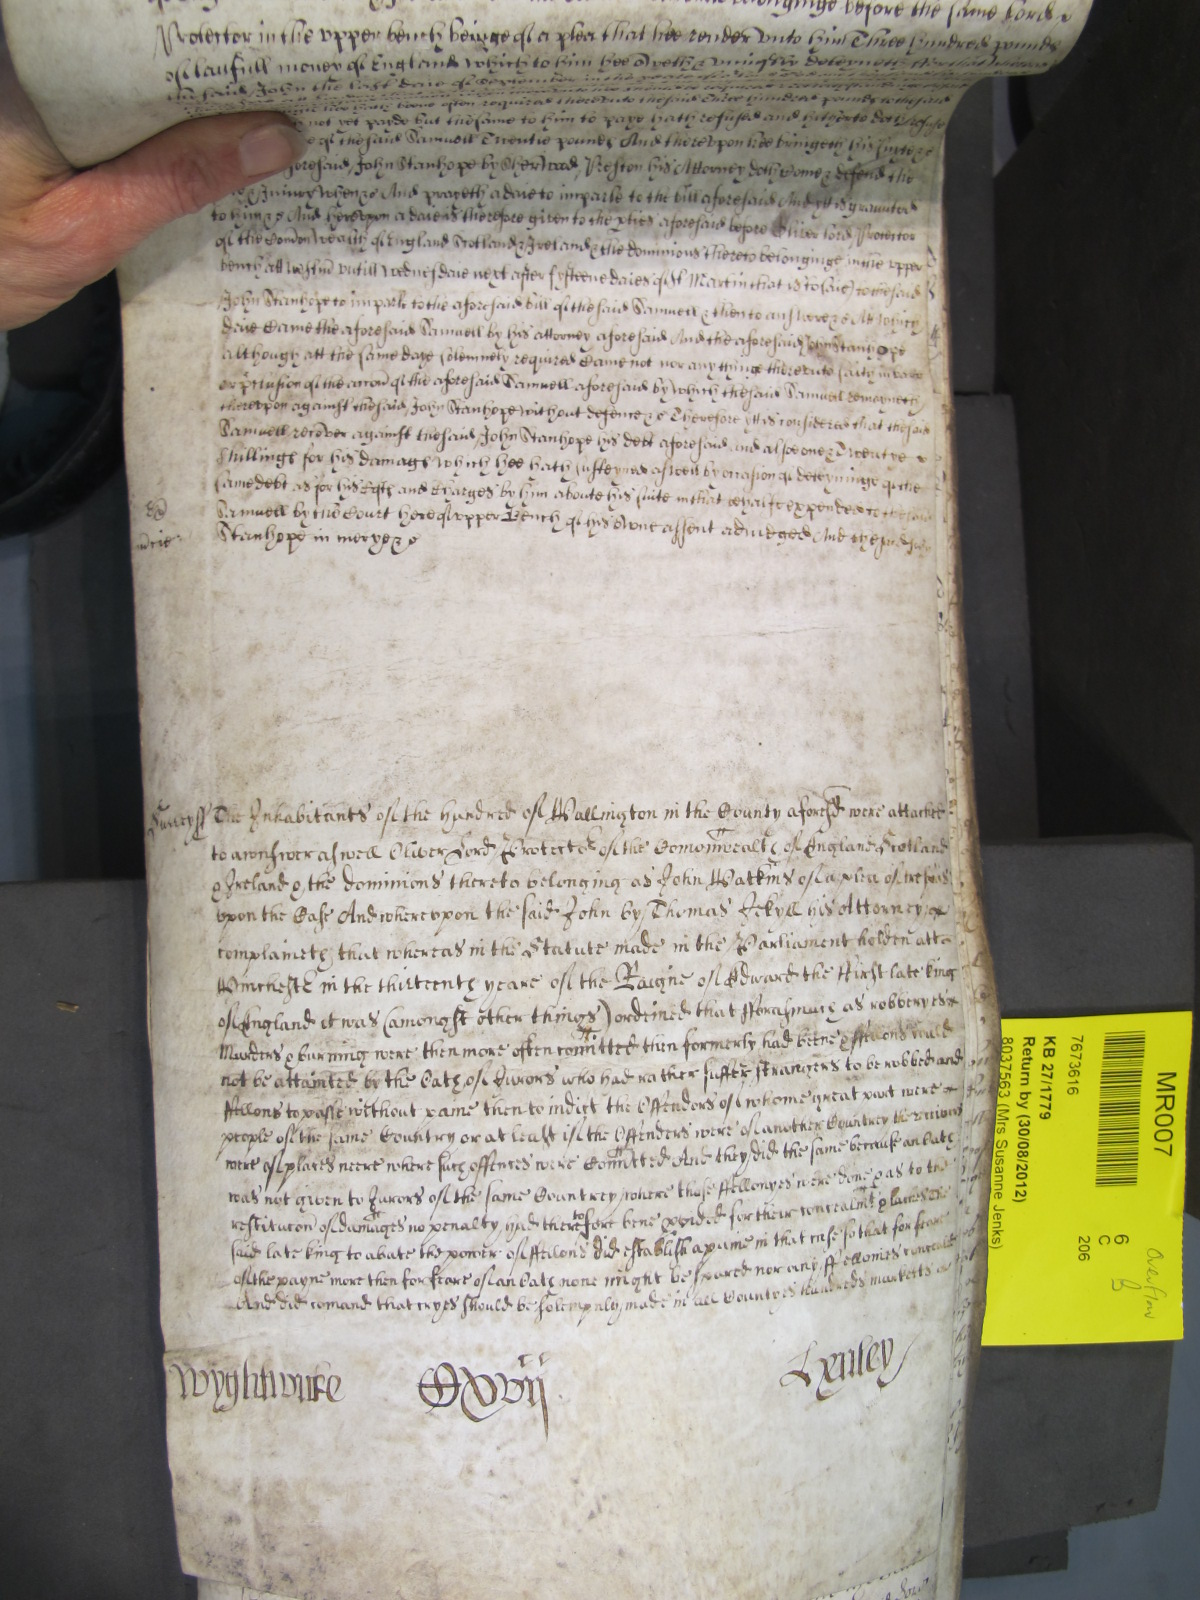 belonginge before the same Lord
Protector in the vpper bench beinge of a plea that hee render vnto him Three hundred pounds
of lawfull money of England which to him hee oweth & vniustly deteyneth
the said John the last daie of
not yet payde but the same to him to paye hath refused and hitherto doth refuse
of the said Samuell Twentie pounds And therevpon hee bringeth his suite &c
aforesaid John Stanhope by Sherwood Preston his Attorney doth Come & defend the
Iniury When &c And prayeth a daie to imparle to the bill aforesaid And yt is graunted
to him &c And herevpon a daie is therefore given to the pties aforesaid before Oliver Lord Protector
of the Comonwealth of England Scotland & Ireland & the dominions thereto belonginge in the vpper
bench att Westm vntill Wednesdaie next after fyfteene daies of St Martin that is to saie to the said
John Stanhope to imparle to the aforesaid bill of the said Samuell & then to answere &c At which
daie Came the aforesaid Samuell by his attorney aforesaid And the aforesaid John Stanhope
although att the same daye solemnely required Came not nor any thinge therevnto saith in barr
or pclusion of the accon of the aforesaid Samuell aforesaid by which the said Samuel remayneth
therevpon against the said John Stanhope without defence &c Therefore yt is considered that the said
Samuell recover against the said John Stanhope his debt aforesaid and alsoe one & Twentie
shillings for his damage which hee hath susteyned aswell by occasion of deteyninge of the
same debt as for his Costs and Charges by him aboute his suite in that behalfe expended to the said
Samuell by the Court here of vpper Bench of his owne assent adiudged And the said John
Stanhope in mercy &c
Surrey ss The Inhabitants of the hundred of Wallington in the County aforesd were attached
to answer aswell Oliver Lord Protector of the Comonwealth of England Scotland
& Ireland & the dominions thereto belonging as John Watkins of a plea of trespas
vpon the Case And wherevpon the said John by Thomas Jekyll his Attorney
complaineth that whereas in the Statute made in the Parliament holden att
Winchester in the thirteenth yeare of the Raigne of Edward the First late king
of England it was (amongst other things) ordeined that fforasmuch as robberyes
Murders & burning were then more often comitted then formerly had beene & ffellons could
not be attainted by the Oath of Jurors who had rather suffer strangers to be robbed and
ffellons to passe without paine then to indict the Offenders of whome great part were
people of the same Country or at least if the Offenders were of another Countrey the receivors
were of places neere where such offences were Comitted And they did the same because an Oath
was not given to Jurors of the same Countrey where those ffellonyes were done & as to the
restitucon of damages no penalty had theretofore bene pvided for their concealmt & laches the
said late king to abate the power of ffellons did establish a paine in that case so that for feare
of the payne more then for feare of an Oath none might be spared nor any ffellonies concealed
And did comand that cryes should be solempnly made in all Countyes hundreds marketts
Wyghtwicke
xvii
Lynley
MR007
7673616
6
C
206
KB 27/1779
Return by (30/08/2012)
8037563 (Mrs Susanne Jenks)
Overflow